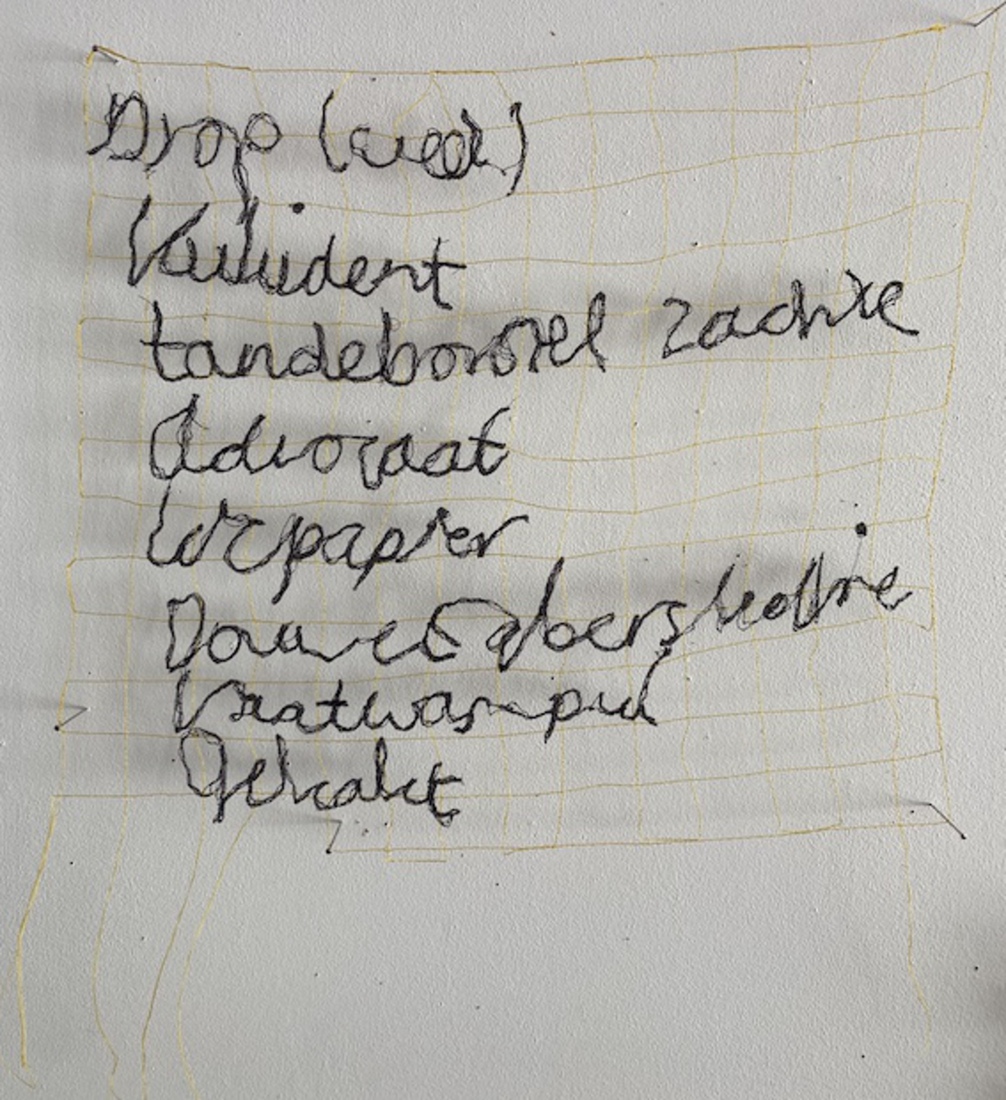 Drop (
Kukident
tandeborstel zachte
Advocaat
wcpapier
Douwe Egberts
Vaatwas
Gehakt